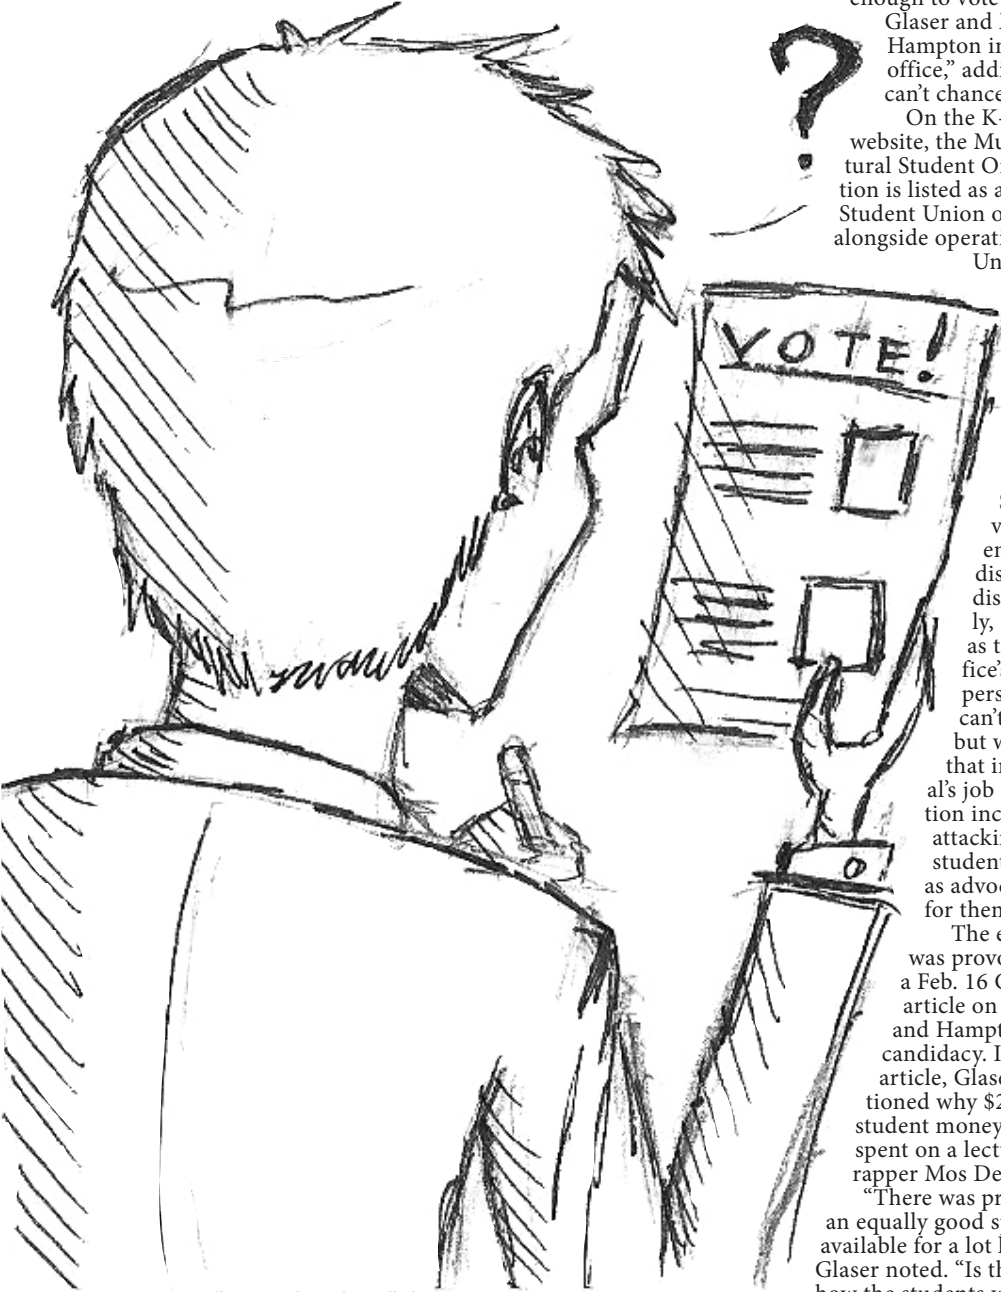 ?
VOTE!
enough to vote
Glaser and
Hampton in
office,” add
can’t chance
On the K-
website, the Mu
tural Student O
tion is listed as a
Student Union o
alongside operati
Un
v
en
dis
dis
ly,
as t
fice’
pers
can’t
but w
that i
al’s job
tion inc
attacki
student
as advo
for then
The e
was provo
a Feb. 16 C
article on
and Hampt
candidacy. I
article, Glas
tioned why $2
student money
spent on a lect
rapper Mos De
“There was pr
an equally good s
available for a lot
Glaser noted. “Is th
how the students